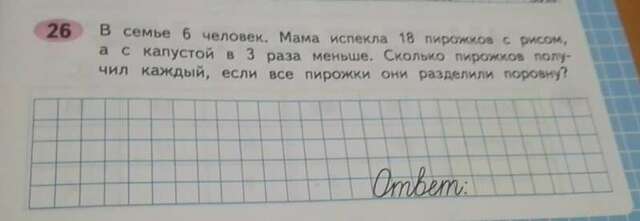 26 В семье 6 человек. Мама испекла 18 пирожков с рисом,
а с капустой в 3 раза меньше. Сколько пирожков полу-
чил каждый, если все пирожки они разделили поровну?
Ответ: